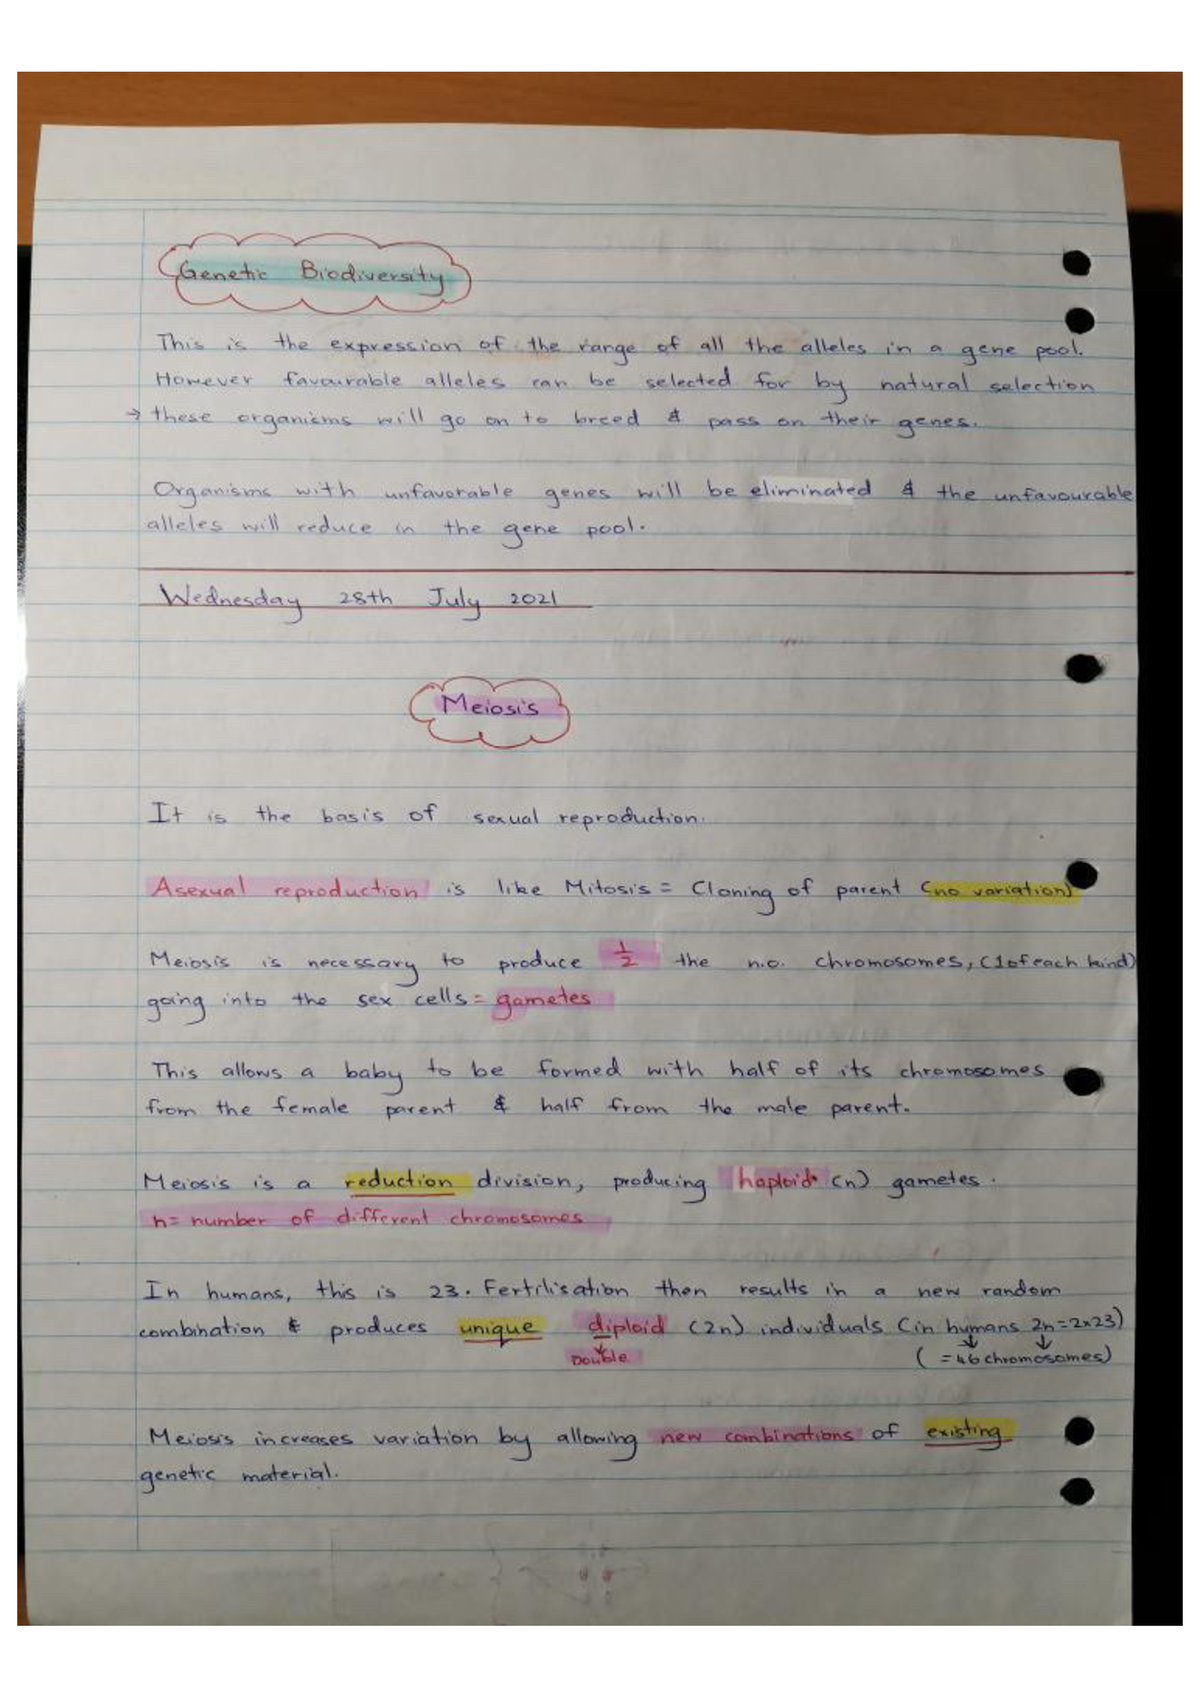 Genetic Biodiversity
This is the expression of the range of all the alleles in a gene pool.
However favourable alleles can be selected for by natural selection
→ these organisms will go on to breed & pass on their genes.
Organisms with unfavorable genes will be eliminated & the unfavourable
alleles will reduce in the gene pool.
Wednesday 28th July 2021
Meiosis
It is the basis of sexual reproduction.
Asexual reproduction is like Mitosis = Cloning of parent (no variation)
Meiosis is necessary to produce 1/2 the n.o. chromosomes, (1 of each kind)
going into the sex cells = gametes
This allows a baby to be formed with half of its chromosomes
from the female parent & half from the male parent.
Meiosis is a reduction division, producing haploid (n) gametes.
n = number of different chromosomes
In humans, this is 23. Fertilisation then results in a new random
combination & produces unique diploid (2n) individuals (in humans 2n=2x23)
Double (= 46 chromosomes)
Meiosis increases variation by allowing new combinations of existing
genetic material.